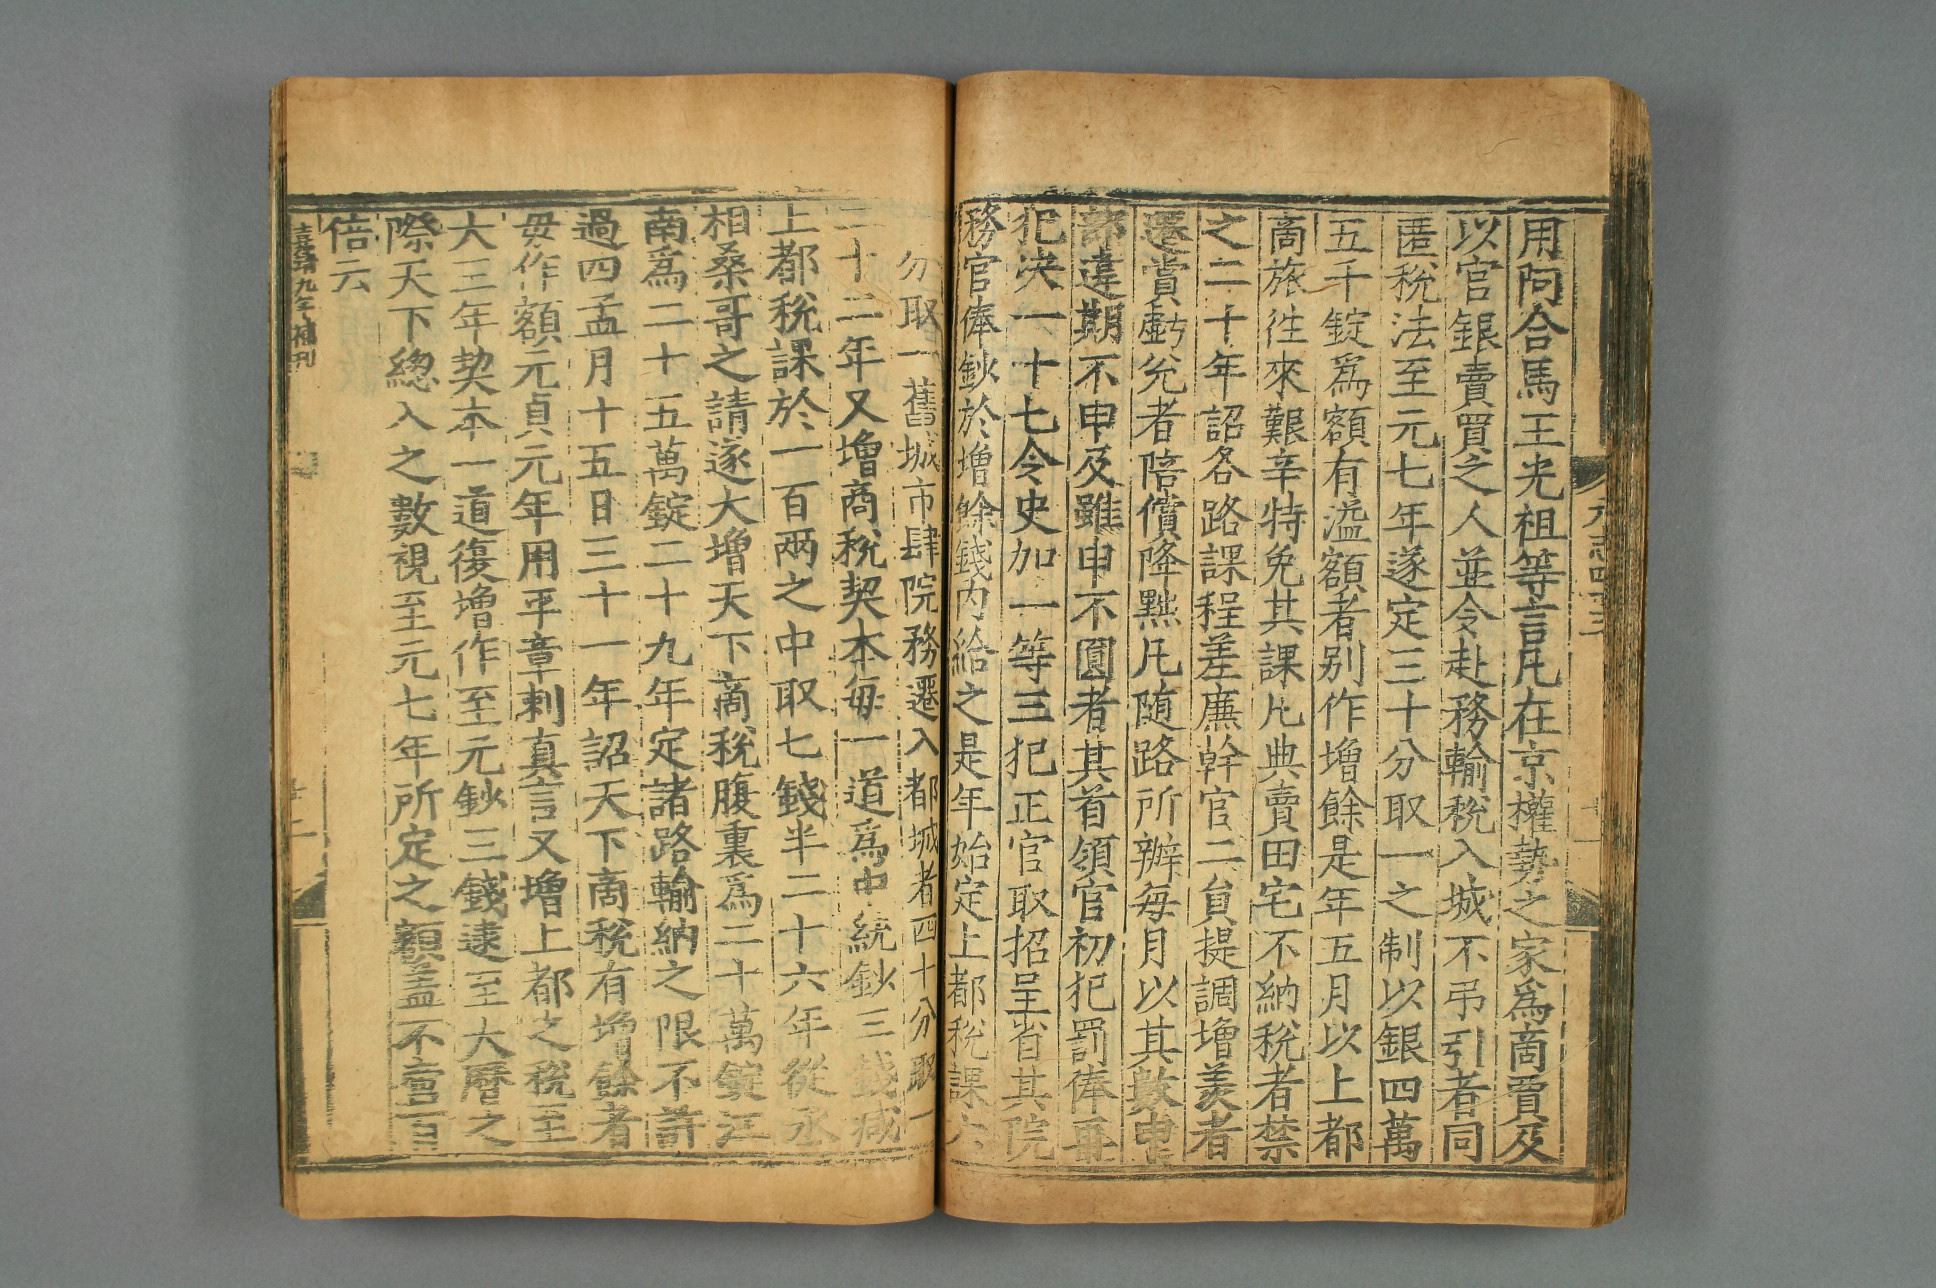 用阿合馬王光祖等言凡在京權勢之家爲商賈及
以官銀賣買之人並令赴務輸稅入城不弔引者同
匿稅法至元七年遂定三十分取一之制以銀四萬
五千錠爲額有溢額者別作增餘是年五月以上都
商旅往來艱辛特免其課凡典賣田宅不納稅者禁
之二十年詔各路課程差廉幹官二負提調增羨者
遷賞虧兊者陪償降黜凡隨路所辦每月以其數申
部違期不申及雖申不圓者其首領官初犯罰俸再
犯决一十七令史加一等三犯正官取招呈省其院
務官俸鈔於增餘錢內給之是年始定上都稅課六
分取一舊城市肆院務遷入都城者四十分取一
二十二年又增商稅契本每一道爲中統鈔三錢减
上都稅課於一百两之中取七錢半二十六年從丞
相桑哥之請遂大增天下商稅腹裏爲二十萬錠江
南爲二十五萬錠二十九年定諸路輸納之限不許
過四孟月十五日三十一年詔天下商稅有增餘者
毋作額元貞元年用平章剌真言又增上都之稅至
大三年契本一道復增作至元鈔三錢逮至大曆之
際天下總入之數視至元七年所定之額蓋不啻百
倍云
嘉靖九年補刊